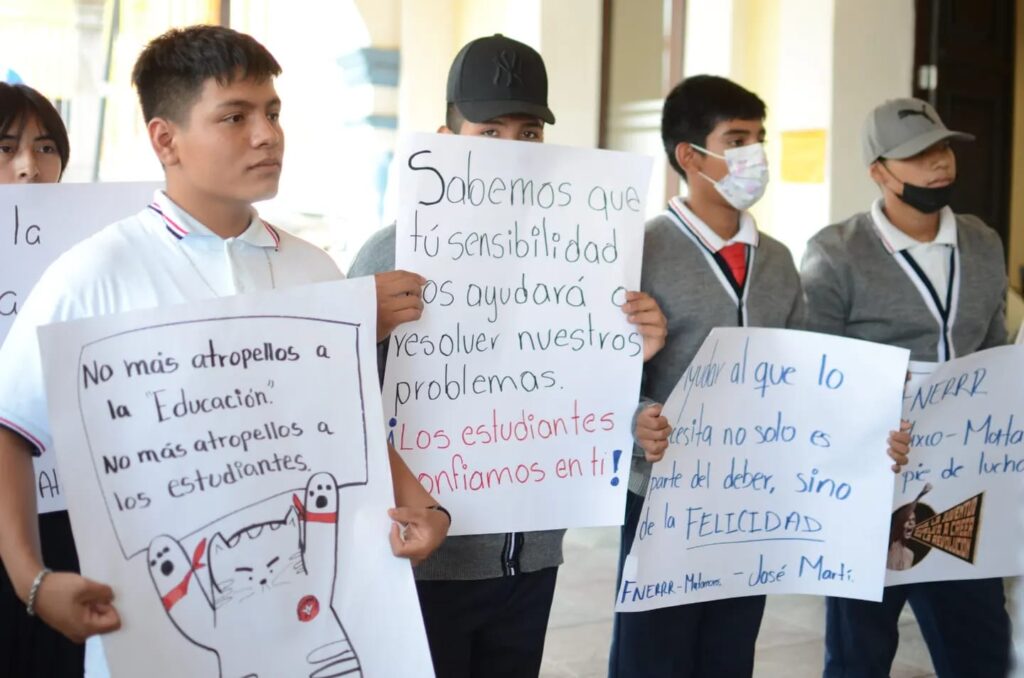 la
a
AH
No más atropellos a
la "Educación."
No más atropellos a
los estudiantes.
NY
Sabemos que
tú sensibilidad
os ayudará a
resolver nuestros
problemas.
¡Los estudiantes
onfiamos en ti!
yudar al que lo
cesita no solo es
parte del deber, sino
de la FELICIDAD
FNERRR-Matamoros. - José Martí.
FNERRR
xico-Mata
pie de lucha